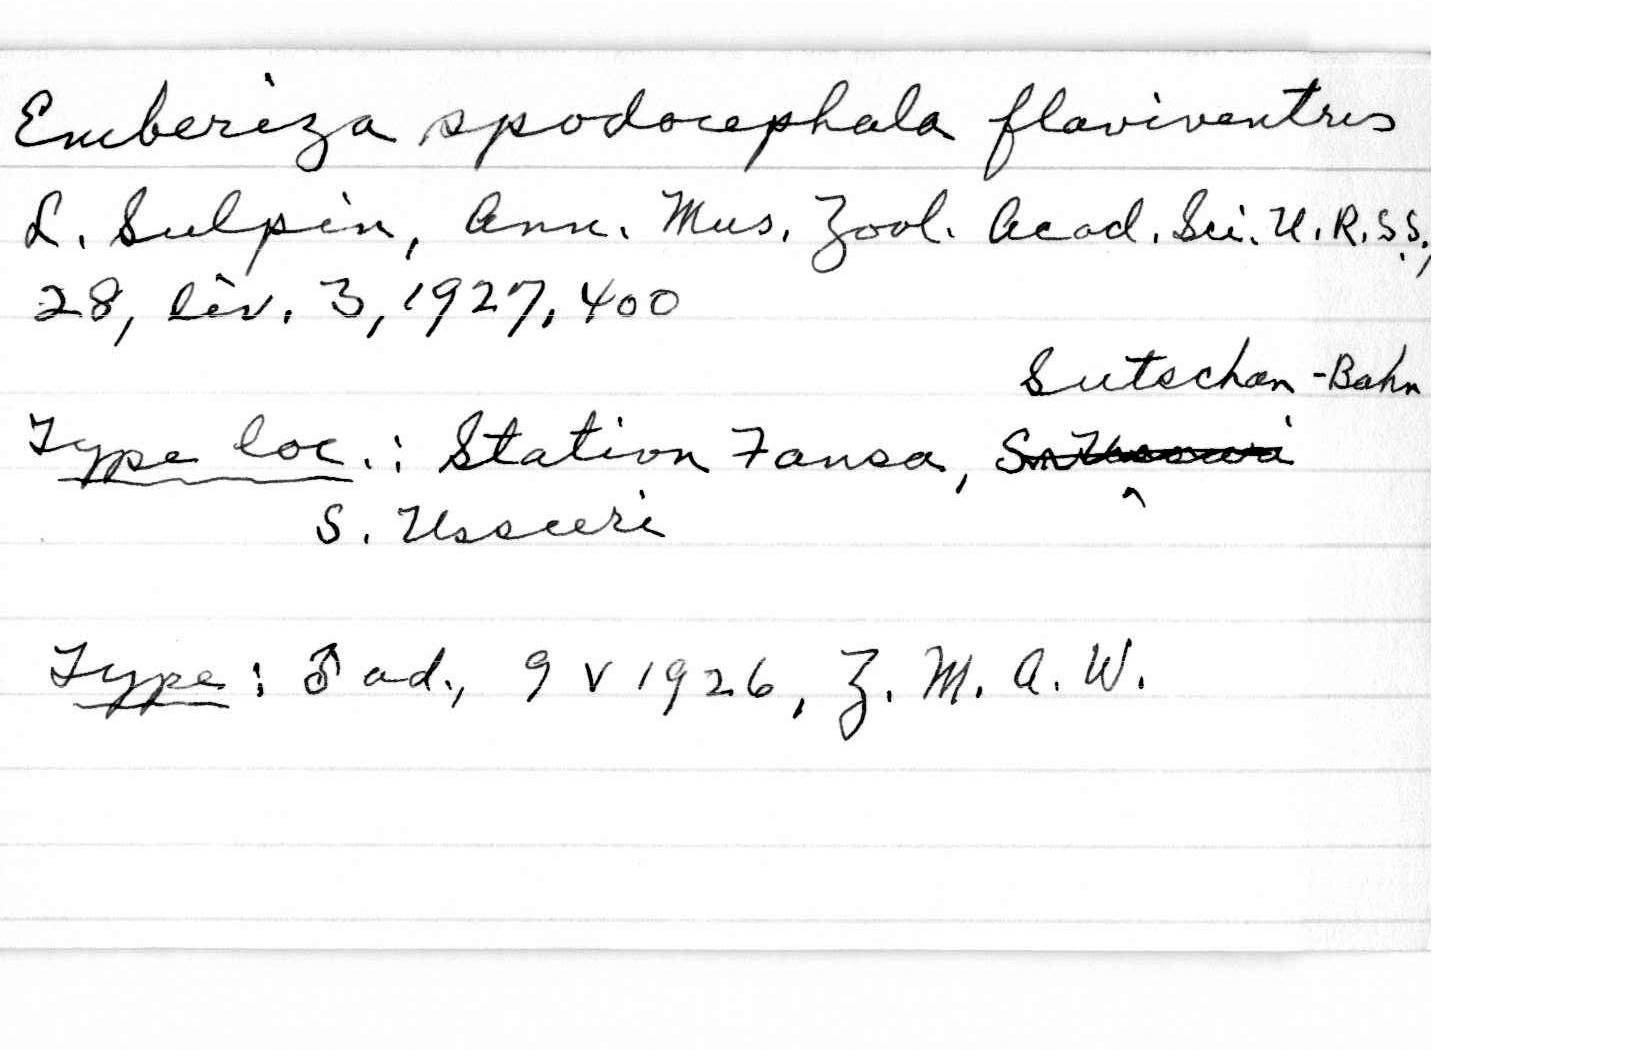 Emberiza spodocephala flaviventris
L. Sulpin, Ann. Mus. Zool. Acad. Sci. U.R.S.S.,
28, Liv. 3, 1927, 400
Sutschan-Bahn
Type loc.: Station Fansa,
S. Ussuri
Type: ♂ ad., 9 V 1926, Z. M. A. W.